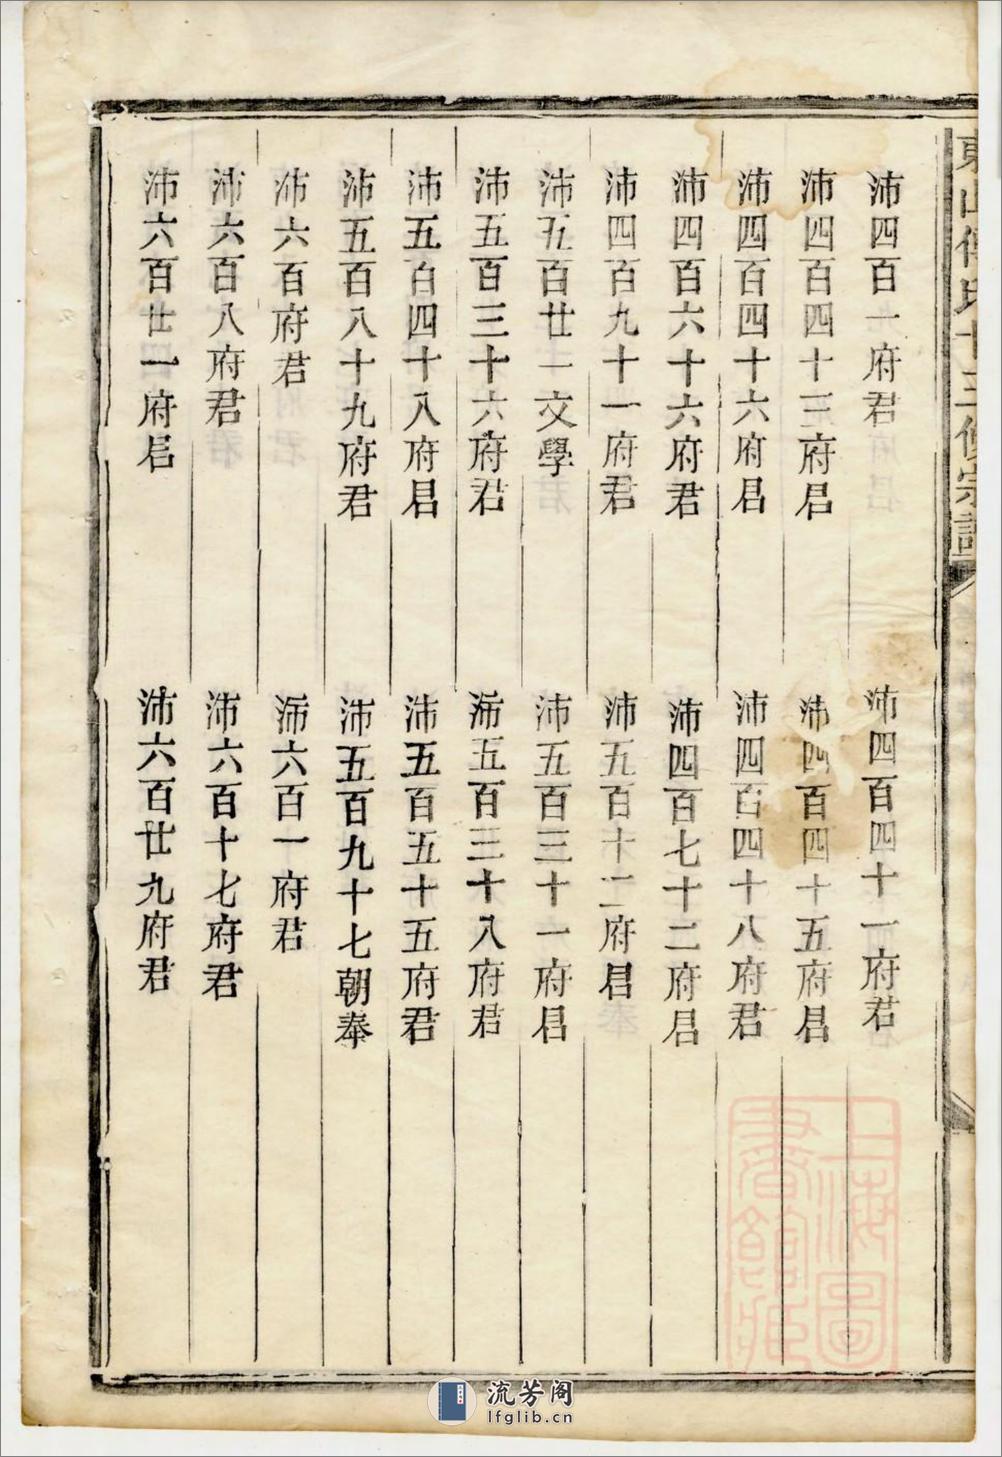 東山傅氏十三修宗譜
沛四百一府君
沛四百四十一府君
沛四百四十三府君
沛四百四十五府君
沛四百四十六府君
沛四百四十八府君
沛四百六十六府君
沛四百七十二府君
沛四百九十一府君
沛五百十二府君
沛五百廿一文學
沛五百三十一府君
沛五百三十六府君
沛五百三十八府君
沛五百四十八府君
沛五百五十五府君
沛五百八十九府君
沛五百九十七朝奉
沛六百府君
沛六百一府君
沛六百八府君
沛六百十七府君
沛六百廿一府君
沛六百廿九府君
上海圖書館藏
流芳阁
lfglib.cn